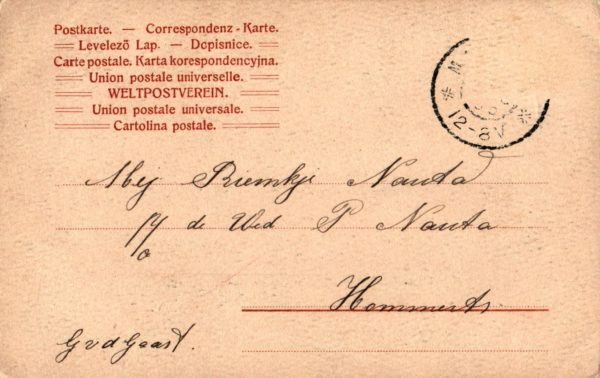 Postkarte. — Correspondenz-Karte.
Levelező Lap. — Dopisnice.
Carte postale. Karta korespondencyjna.
Union postale universelle.
WELTPOSTVEREIN.
Union postale universale.
Cartolina postale.
12-8V
Mej Riemkje Nauta
p/a de Wed P Nauta
Hommerts.
GvdGaast.